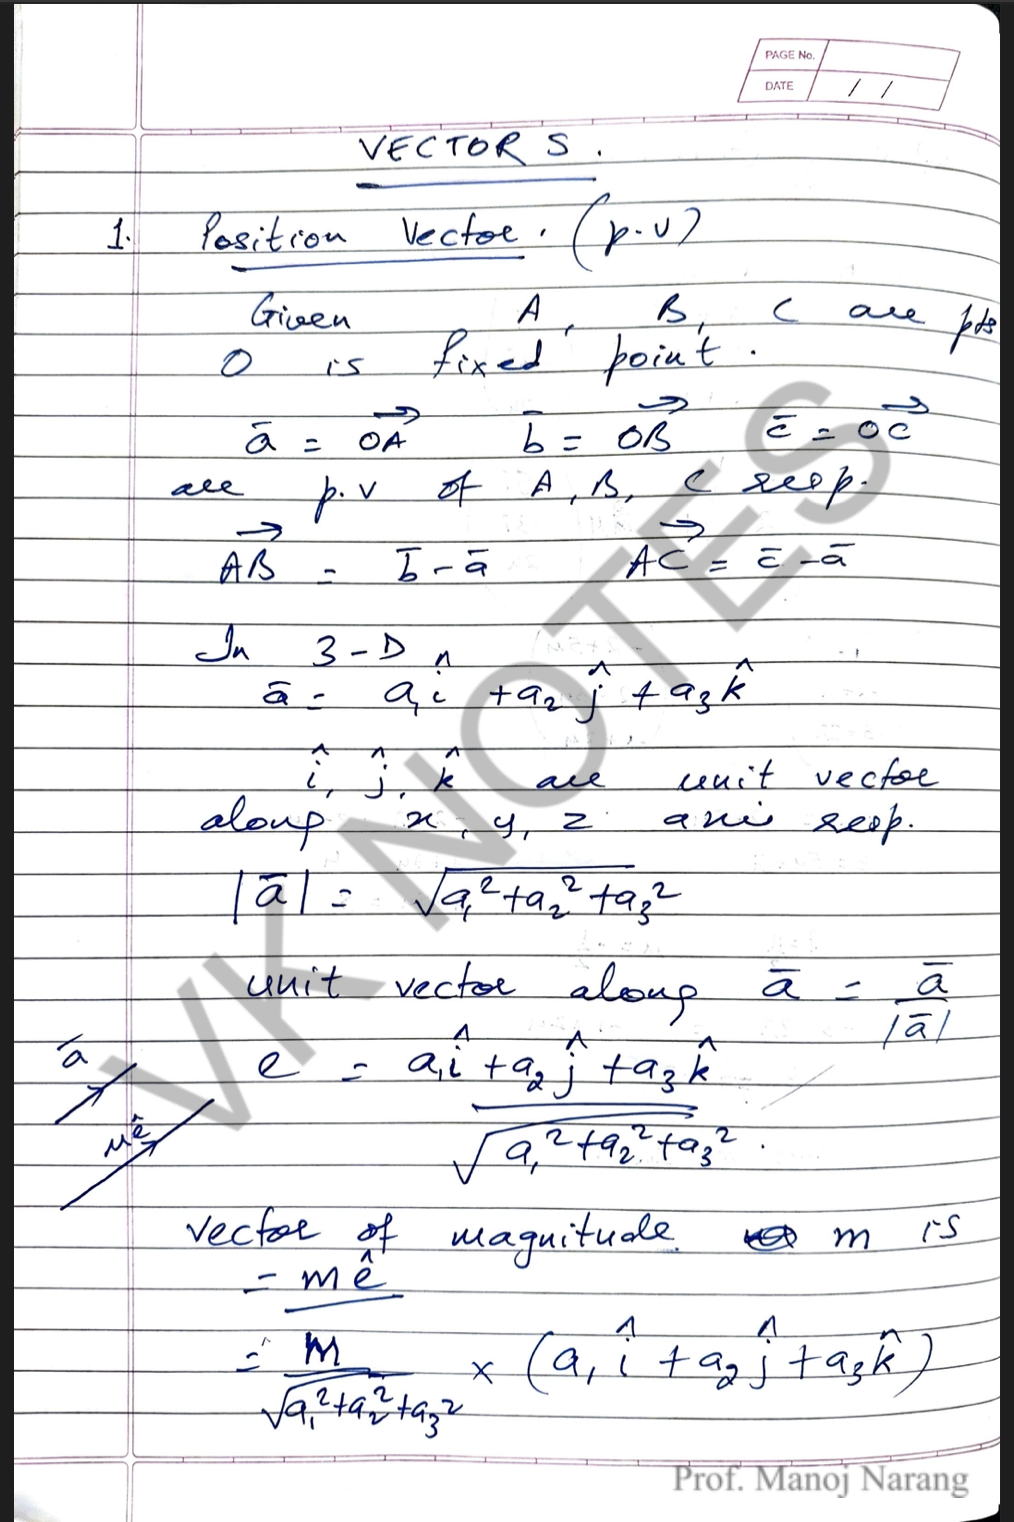 PAGE No.
DATE / /
VECTORS.
1. Position Vector. (p.v)
Given A, B, C are pts
O is fixed point.
ā = OA⃗ b̄ = OB⃗ c̄ = OC⃗
are p.v of A, B, C resp.
AB⃗ = b̄ - ā AC⃗ = c̄ - ā
In 3-D
ā = a₁î + a₂ĵ + a₃k̂
î, ĵ, k̂ are unit vector
along x, y, z axis resp.
|ā| = √a₁²+a₂²+a₃²
unit vector along ā = ā/|ā|
ā
e = a₁î + a₂ĵ + a₃k̂
mê
√a₁²+a₂²+a₃².
vector of magnitude m is
= mê
= m/√a₁²+a₂²+a₃² × (a₁î + a₂ĵ + a₃k̂)
VK NOTES
Prof. Manoj Narang